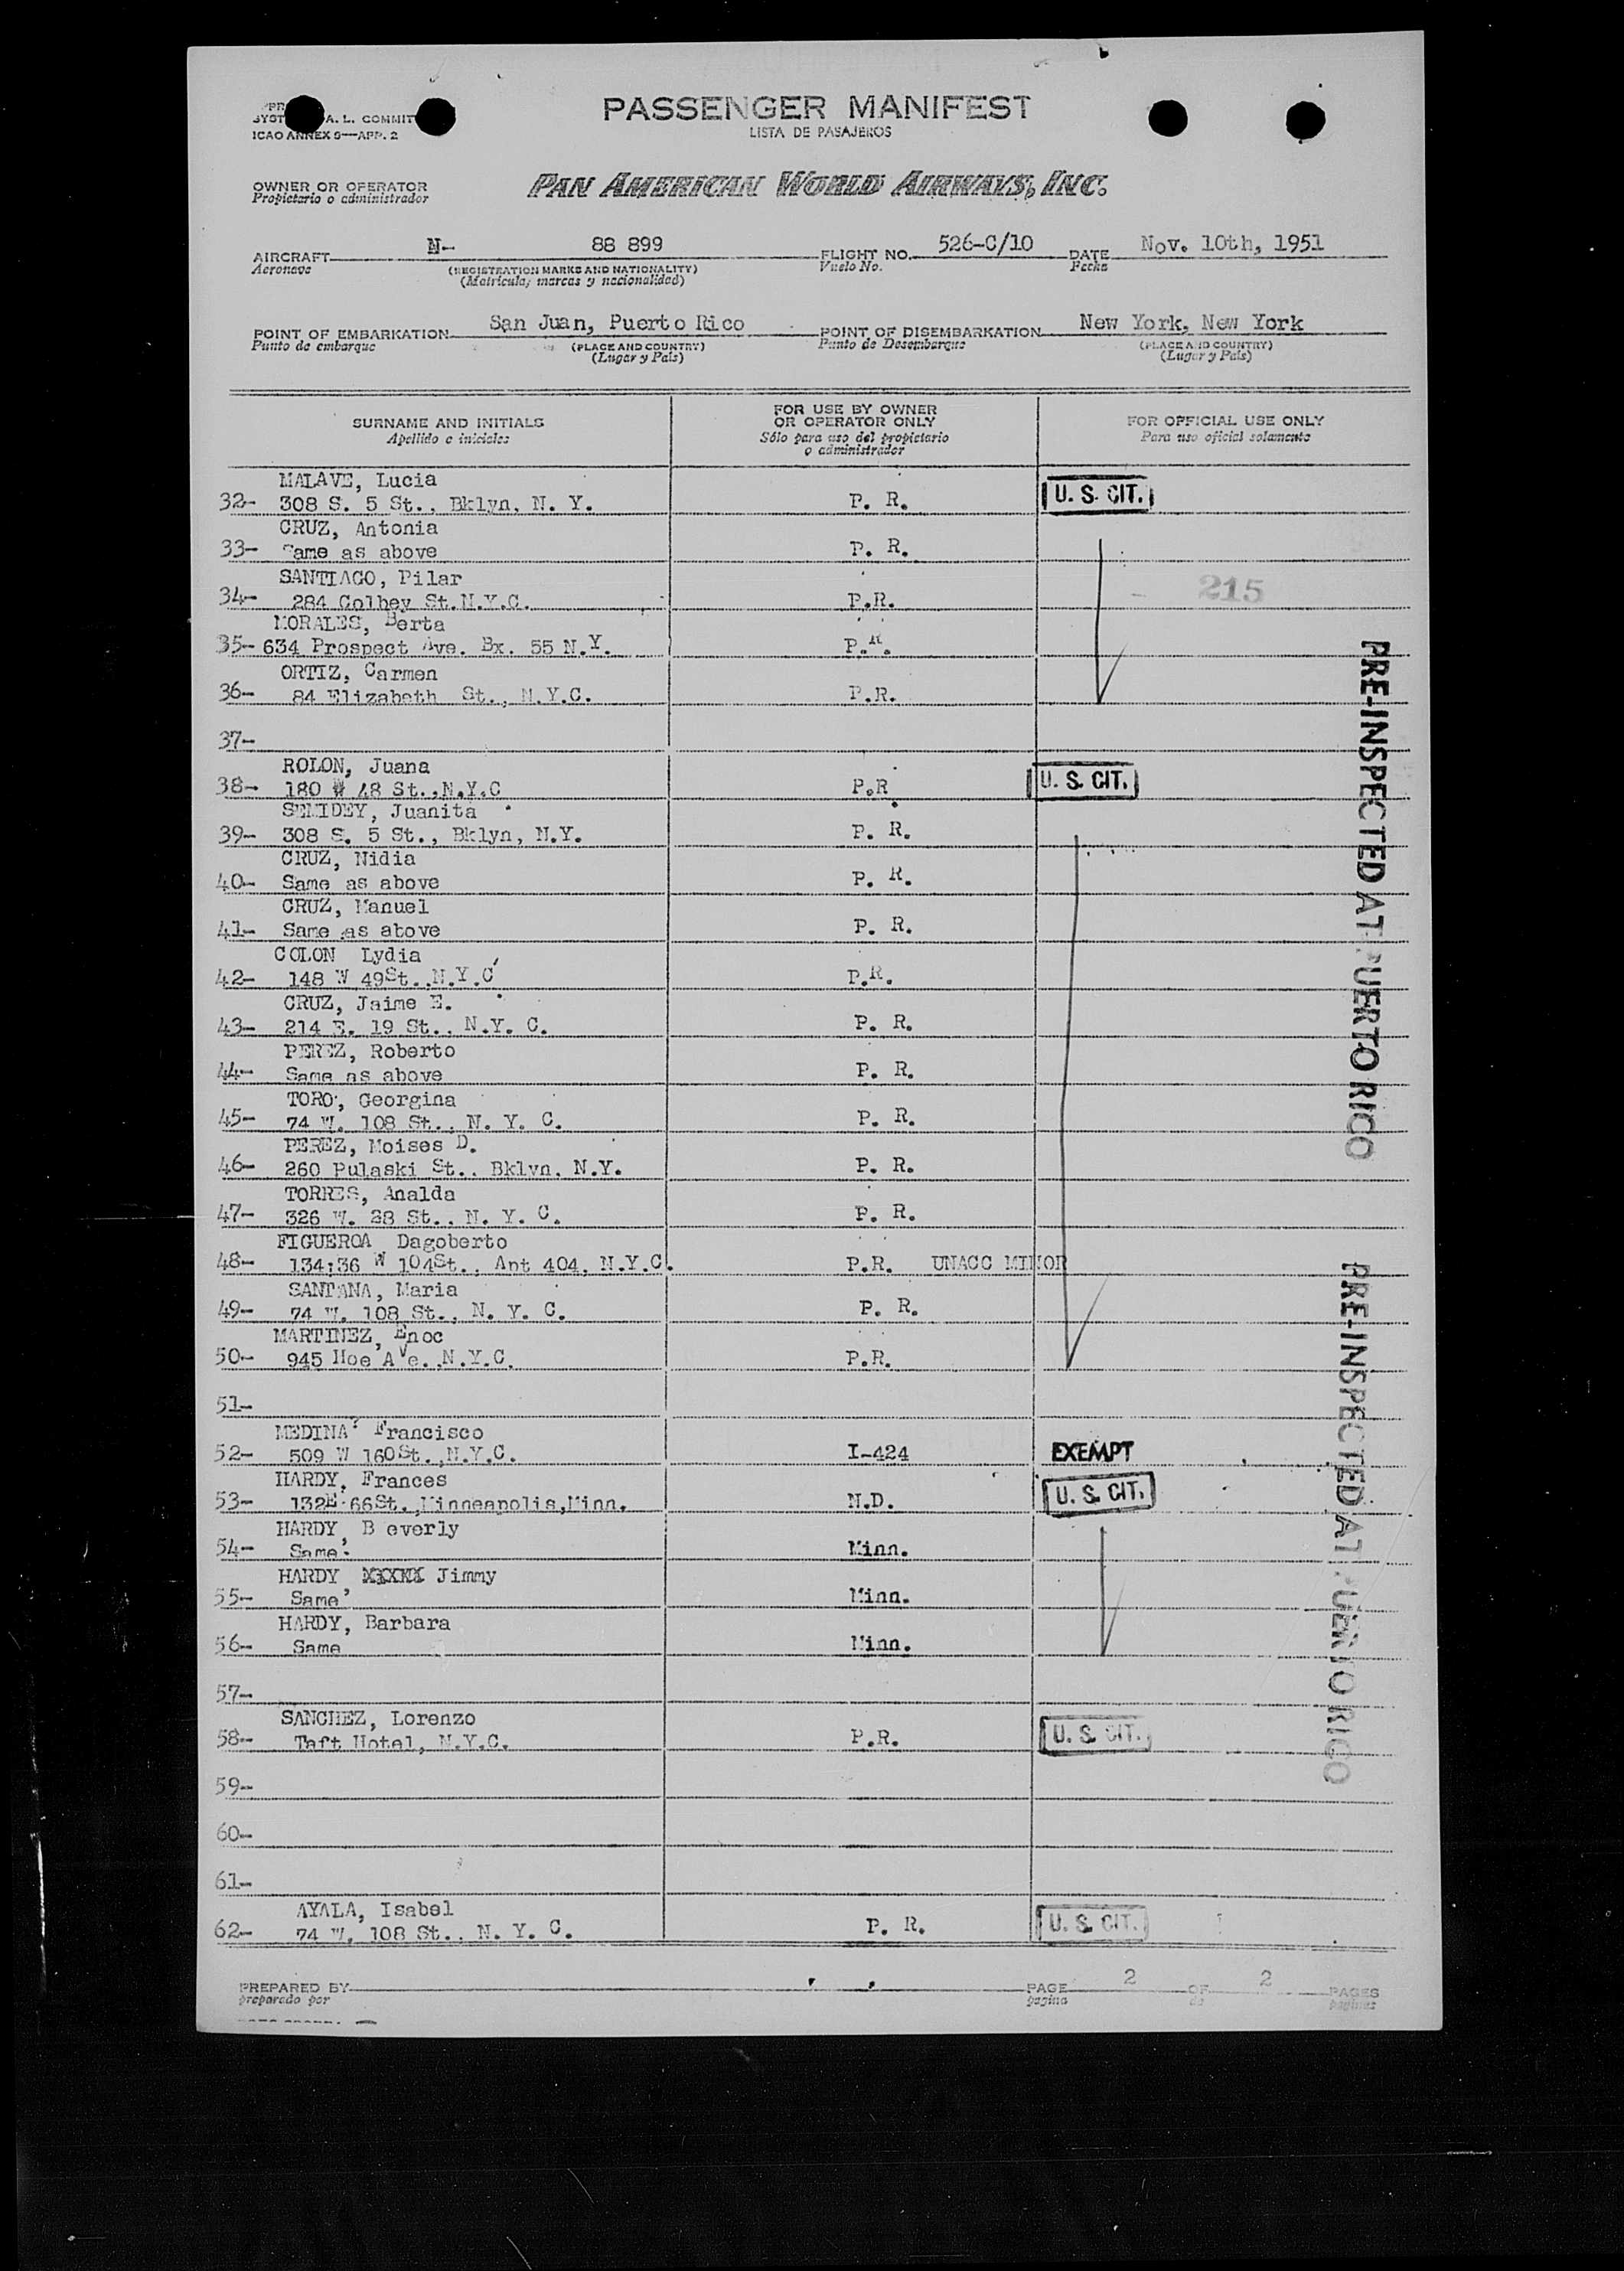 PASSENGER MANIFEST
LISTA DE PASAJEROS
A. L. COMMIT
ICAO ANNEX 9—APP. 2
OWNER OR OPERATOR
Propietario o administrador
PAN AMERICAN WORLD AIRWAYS, INC.
AIRCRAFT N- 88 899 FLIGHT NO. 526-C/10 DATE Nov. 10th, 1951
Aeronave (REGISTRATION MARKS AND NATIONALITY) Vuelo No. Fecha
(Matricula, marcas y nacionalidad)
POINT OF EMBARKATION San Juan, Puerto Rico POINT OF DISEMBARKATION New York, New York
Punto de embarque (PLACE AND COUNTRY) Punto de Desembarque (PLACE AND COUNTRY)
(Lugar y País) (Lugar y País)
SURNAME AND INITIALS
Apellido e iniciales
FOR USE BY OWNER
OR OPERATOR ONLY
Sólo para uso del propietario
o administrador
FOR OFFICIAL USE ONLY
Para uso oficial solamente
MALAVE, Lucia
32- 308 S. 5 St., Bklyn, N. Y. P. R. U. S. CIT.
CRUZ, Antonia
33- Same as above P. R.
SANTIAGO, Pilar
34- 284 Colbey St.N.Y.C. P.R. 215
MORALES, Berta
35- 634 Prospect Ave. Bx. 55 N.Y. P.R.
ORTIZ, Carmen
36- 84 Elizabeth St., N.Y.C. P.R.
37-
ROLON, Juana
38- 180 W 48 St.,N.Y.C P.R U. S. CIT.
SEMIDEY, Juanita
39- 308 S. 5 St., Bklyn, N.Y. P. R.
CRUZ, Nidia
40- Same as above P. R.
CRUZ, Manuel
41- Same as above P. R.
COLON Lydia
42- 148 W 49St.,N.Y.C P.R.
CRUZ, Jaime E.
43- 214 E. 19 St., N.Y. C. P. R.
PEREZ, Roberto
44- Same as above P. R.
TORO, Georgina
45- 74 W. 108 St., N. Y. C. P. R.
PEREZ, Moises D.
46- 260 Pulaski St., Bklyn, N.Y. P. R.
TORRES, Analda
47- 326 W. 28 St., N. Y. C. P. R.
FIGUEROA Dagoberto
48- 134;36 W 104St., Apt 404, N.Y.C. P.R. UNACC MINOR
SANTANA, Maria
49- 74 W. 108 St., N. Y. C. P. R.
MARTINEZ, Enoc
50- 945 Hoe Ave.,N.Y.C. P.R.
51-
MEDINA, Francisco
52- 509 W 160St.,N.Y.C. I-424 EXEMPT
HARDY, Frances
53- 132E 66St.,Minneapolis,Minn. N.D. U. S. CIT.
HARDY, B everly
54- Same Minn.
HARDY, XXXXX Jimmy
55- Same Minn.
HARDY, Barbara
56- Same Minn.
57-
SANCHEZ, Lorenzo
58- Taft Hotel, N.Y.C. P.R. U. S. CIT.
59-
60-
61-
AYALA, Isabel
62- 74 W. 108 St., N. Y. C. P. R. U. S. CIT.
PRE-INSPECTED AT PUERTO RICO
PRE-INSPECTED AT PUERTO RICO
PREPARED BY PAGE 2 OF 2 PAGES
preparado por pagina de paginas